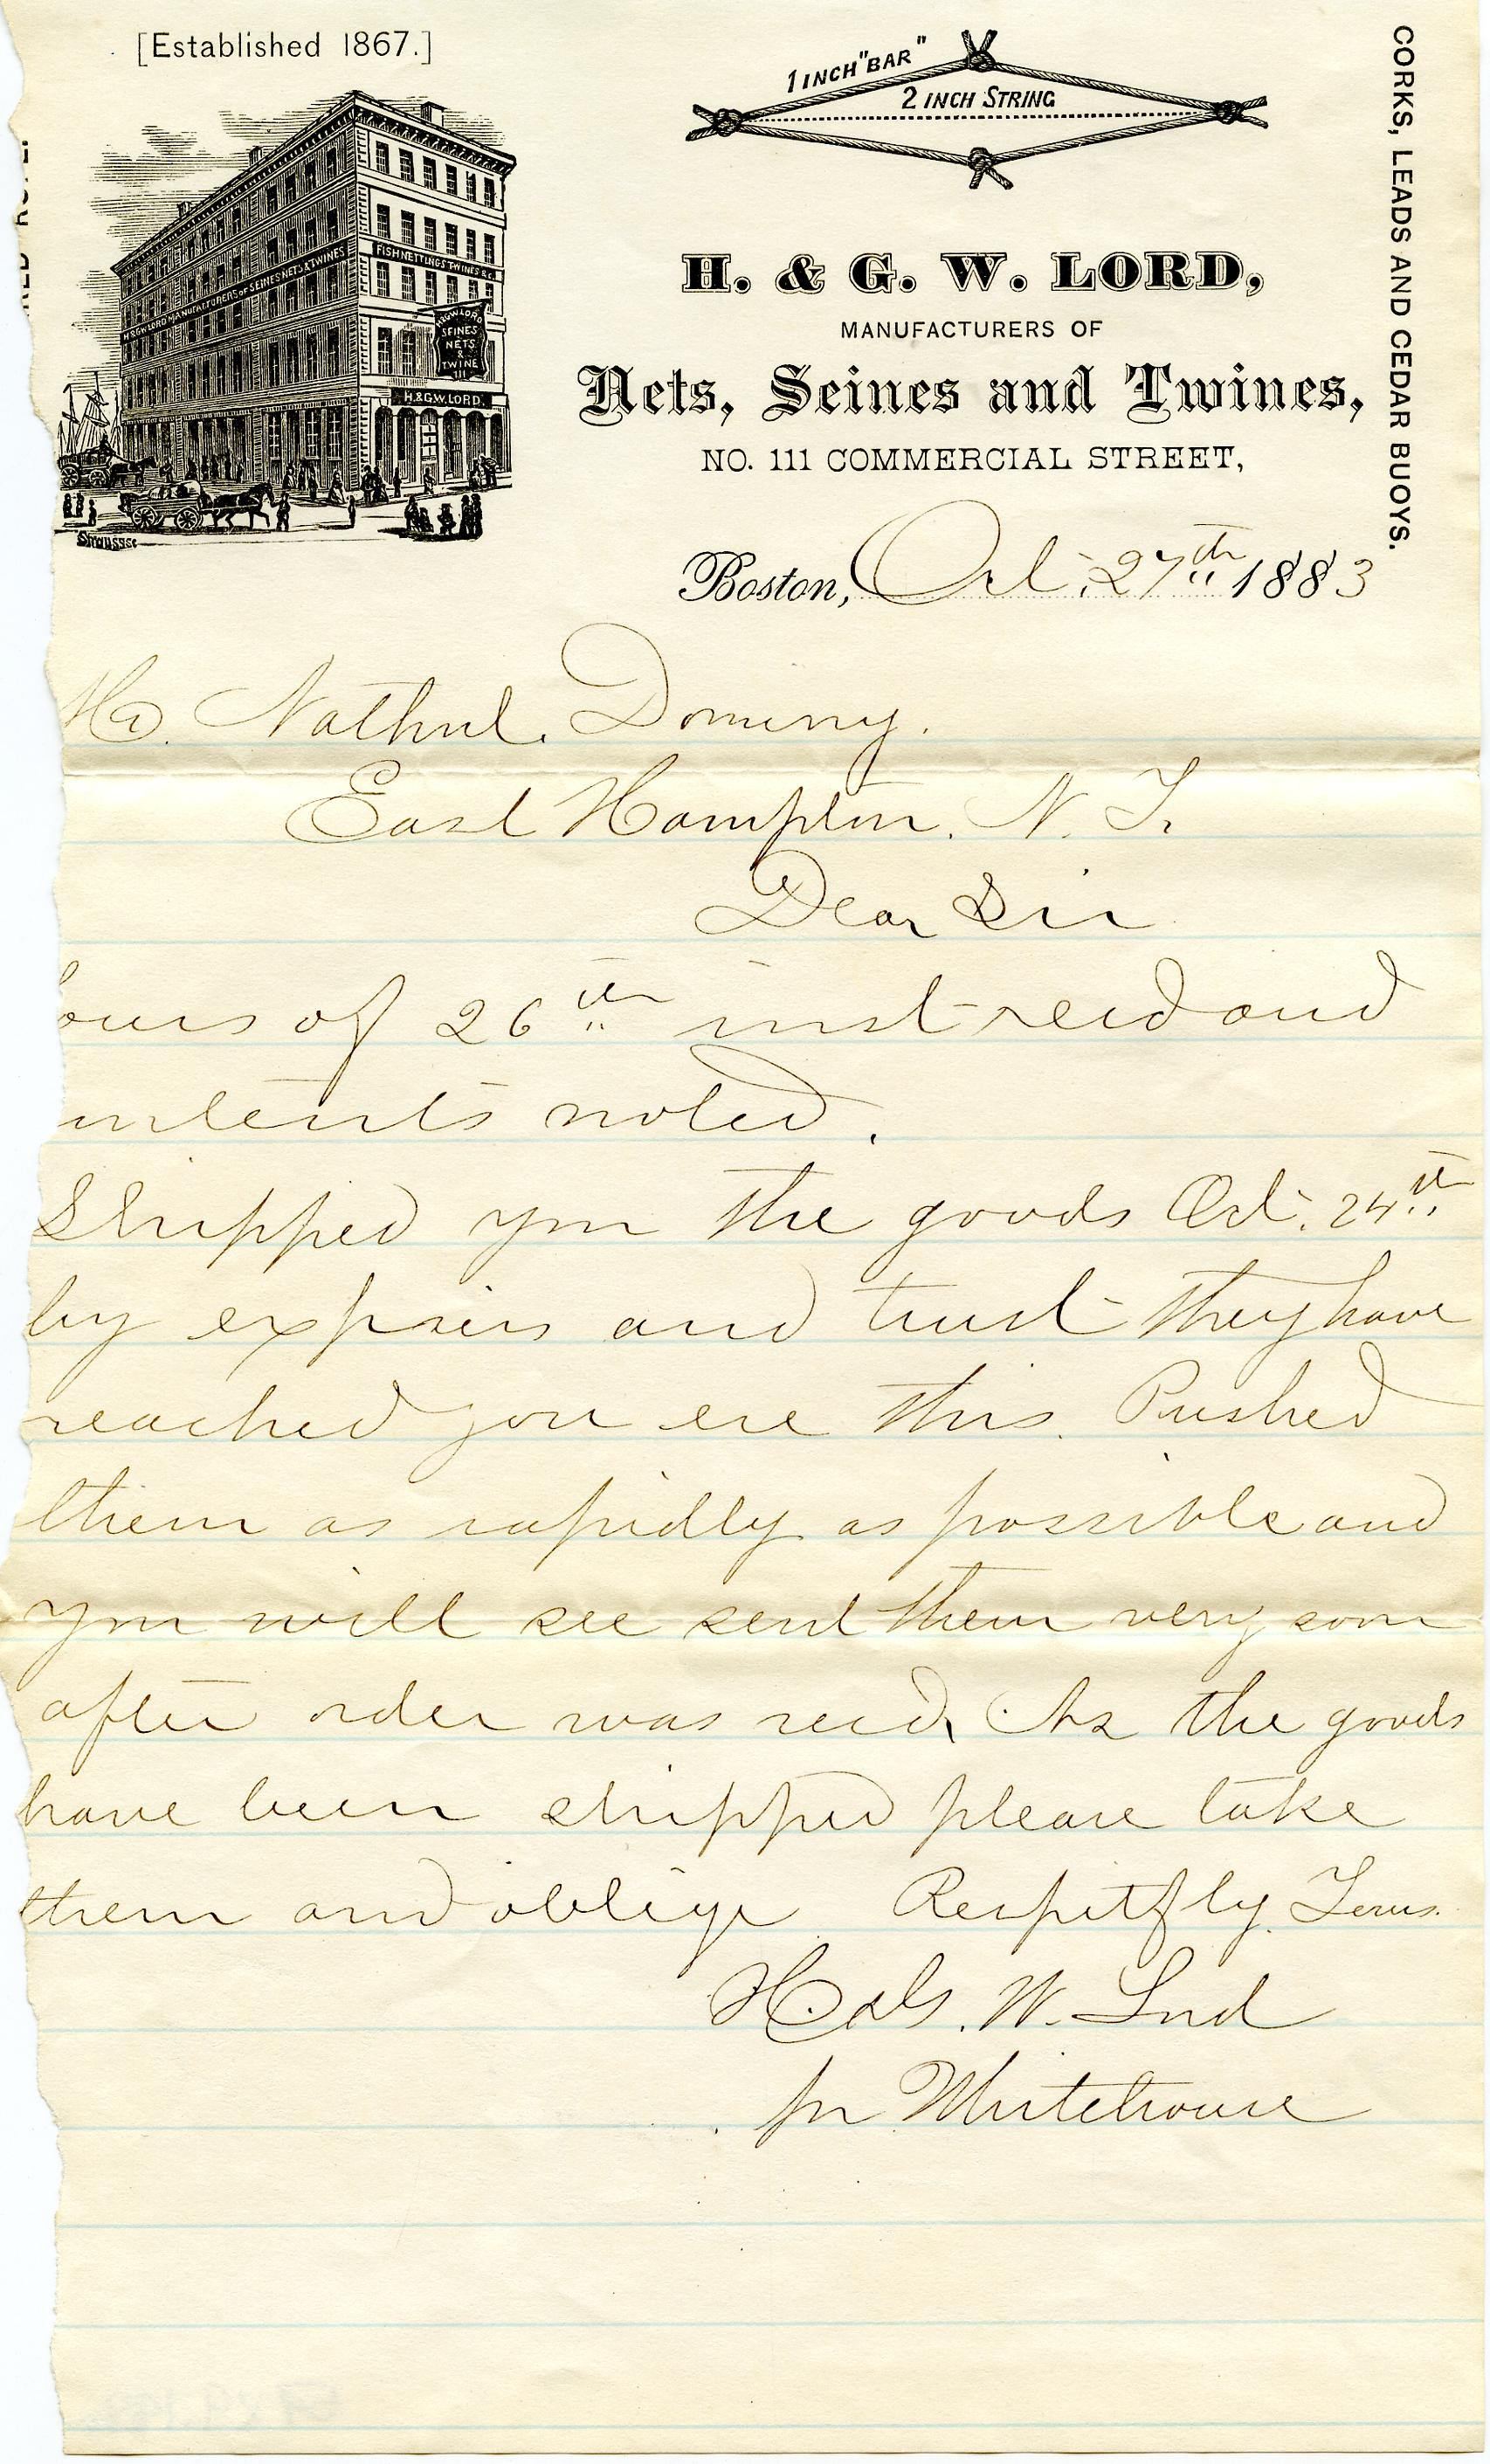 [Established 1867.]
1 INCH "BAR"
2 INCH STRING
CORKS, LEADS AND CEDAR BUOYS.
H. & G.W. LORD MANUFACTURERS OF SEINES NETS & TWINES
FISH NETTINGS TWINES &C.
H.&G.W. LORD
SEINES
NETS
&
TWINE
111
H.&G.W. LORD.
H. & G. W. LORD,
MANUFACTURERS OF
Nets, Seines and Twines,
NO. 111 COMMERCIAL STREET,
Boston, Oct. 27th 1883
Mr. Nathnl. Dominy.
East Hampton. N.Y.
Dear Sir
ours of 26th inst recd and
ntents noted.
Shipped you the goods Oct. 24th
by express and trust they have
reached you ere this. Pushed
them as rapidly as possible and
you will see sent them very soon
after order was recd. As the goods
have been shipped please take
them and oblige Respctfly Yours.
H. & G. W. Lord
pr Whitehouse